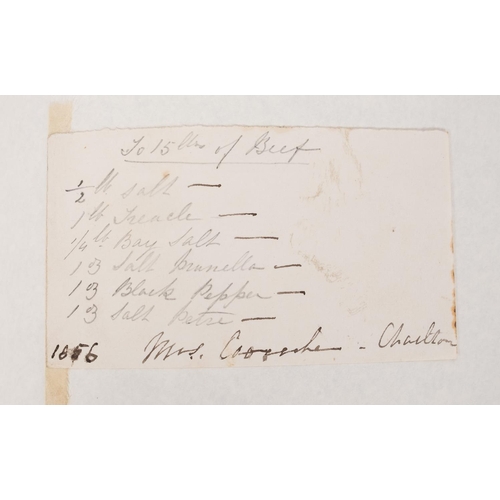 To 15 lbs of Beef
1/2 lb Salt —
1 lb Treacle —
1/4 lb Bay Salt —
1 oz Salt Prunella —
1 oz Black Pepper —
1 oz Salt Petre —
1856 Mrs. - Charlton